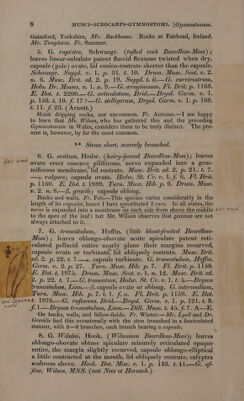 8 MUSCI-ACROCARPI-GYMNOSTOMI. [Gymnostomum.
Gainsford, Yorkshire, Mr. Backhouse. Rocks at Fairhead, Ireland.
Mr. Templeton. Fr. Summer.
5. G. rupéstre, Schwaegr. (tufted rock Beardless-Moss);
leaves linear-subulate patent flaccid flexuose twisted when dry,
capsule (pale) ovate, lid conico-rostrate shorter than the capsule.
Schwaegr. Suppl. v. 1. p. 31. t. 10. Drum. Musc. Scot. v. 2.
n. 6. Musc. Brit. ed. 2. p. 19. Suppl. t. ii.—G. curvirostrum,
Hobs. Br. Mosses, v. 1. n. 9.—G. æruginosum, Fl. Brit. p. 1163.
E. Bot. t. 2200.—G. articulatum, Brid.—Bryol. Germ. v. 1.
p. 156. t. 10. f. 17?—G. stelligerum, Bryol. Germ. v. 1. p. 168.
t. 11. f. 23. (Arnott.)
Moist dripping rocks, not uncommon. Fr. Autumn.—I am happy
to learn that Mr. Wilson, who has gathered this and the preceding
Gymnostomum in Wales, considers them to be truly distinct. The present
is, however, by far the most common.
** Stems short, scarcely branched.
6. G. ovátum, Hedw. (hairy-leaved Beardless-Moss); leaves
ovate erect concave piliferous, nerve expanded into a gemmiferous
membrane, lid rostrate. Musc. Brit. ed. 2. p. 21. t. 7.
—α. vulgare; capsule ovate. Hedw. St. Cr. v. 1. f. 6. Fl. Brit.
p. 1160. E. Bot. t. 1889. Turn. Musc. Hib. p. 9. Drum. Musc.
v. 2. n. 8.—β. gracile; capsule oblong.
Banks and walls. Fr. Feb.—This species varies considerably in the
length of its capsule, hence I have constituted 2 vars. In all states, the
nerve is expanded into a membrane on each side from above the middle
to the apex of the leaf: but Mr. Wilson observes that gemmæ are not
always attached to it.
7. G. truncátulum, Hoffm. (little blunt-fruited Beardless-Moss);
leaves oblongo-obovate acute apiculate patent reticulated
pellucid entire nearly plane their margins recurved,
capsule ovate or turbinate, lid obliquely rostrate. Musc. Brit.
ed. 2. p. 22. t. 7.—α. capsule turbinate. G. truncatulum, Hoffm.
Germ. v. 2. p. 27. Turn. Musc. Hib. p. 7. Fl. Brit. p. 1158.
E. Bot. t. 1975. Drum. Musc. Scot. v. 1. n. 12. Musc. Brit. ed.
2. p. 22. t. 7.—G. truncatum, Hedw. St. Cr. v. 1. t. 5.—Bryum
truncatulum, Linn.—β. capsule ovate or oblong. G. intermedium,
Turn. Musc. Hib. p. 7. t. 1. f. a. Fl. Brit. p. 1159. E. Bot.
t. 1976.—G. rufescens, Brid.—Bryol. Germ. v. 1. p. 121. t. 9.
On banks, walls, and fallow-fields. Fr. Winter—Mr. Lyell and Dr.
Greville find this occasionally with the stem branched in a fasciculated
manner, with 6—8 branches, each branch bearing a capsule.
8. G. Wilsóni, Hook. (Wilsonian Beardless-Moss); leaves
oblongo-obovate obtuse apiculate minutely reticulated opaque
entire, the margin slightly recurved, capsule oblongo-elliptical
a little contracted at the mouth, lid obliquely rostrate, calyptra
scabrous above. Hook. Bot. Misc. v. 1. p. 143. t. 41.—G. affine,
Wilson, MSS. (not Nees et Hornsch.)